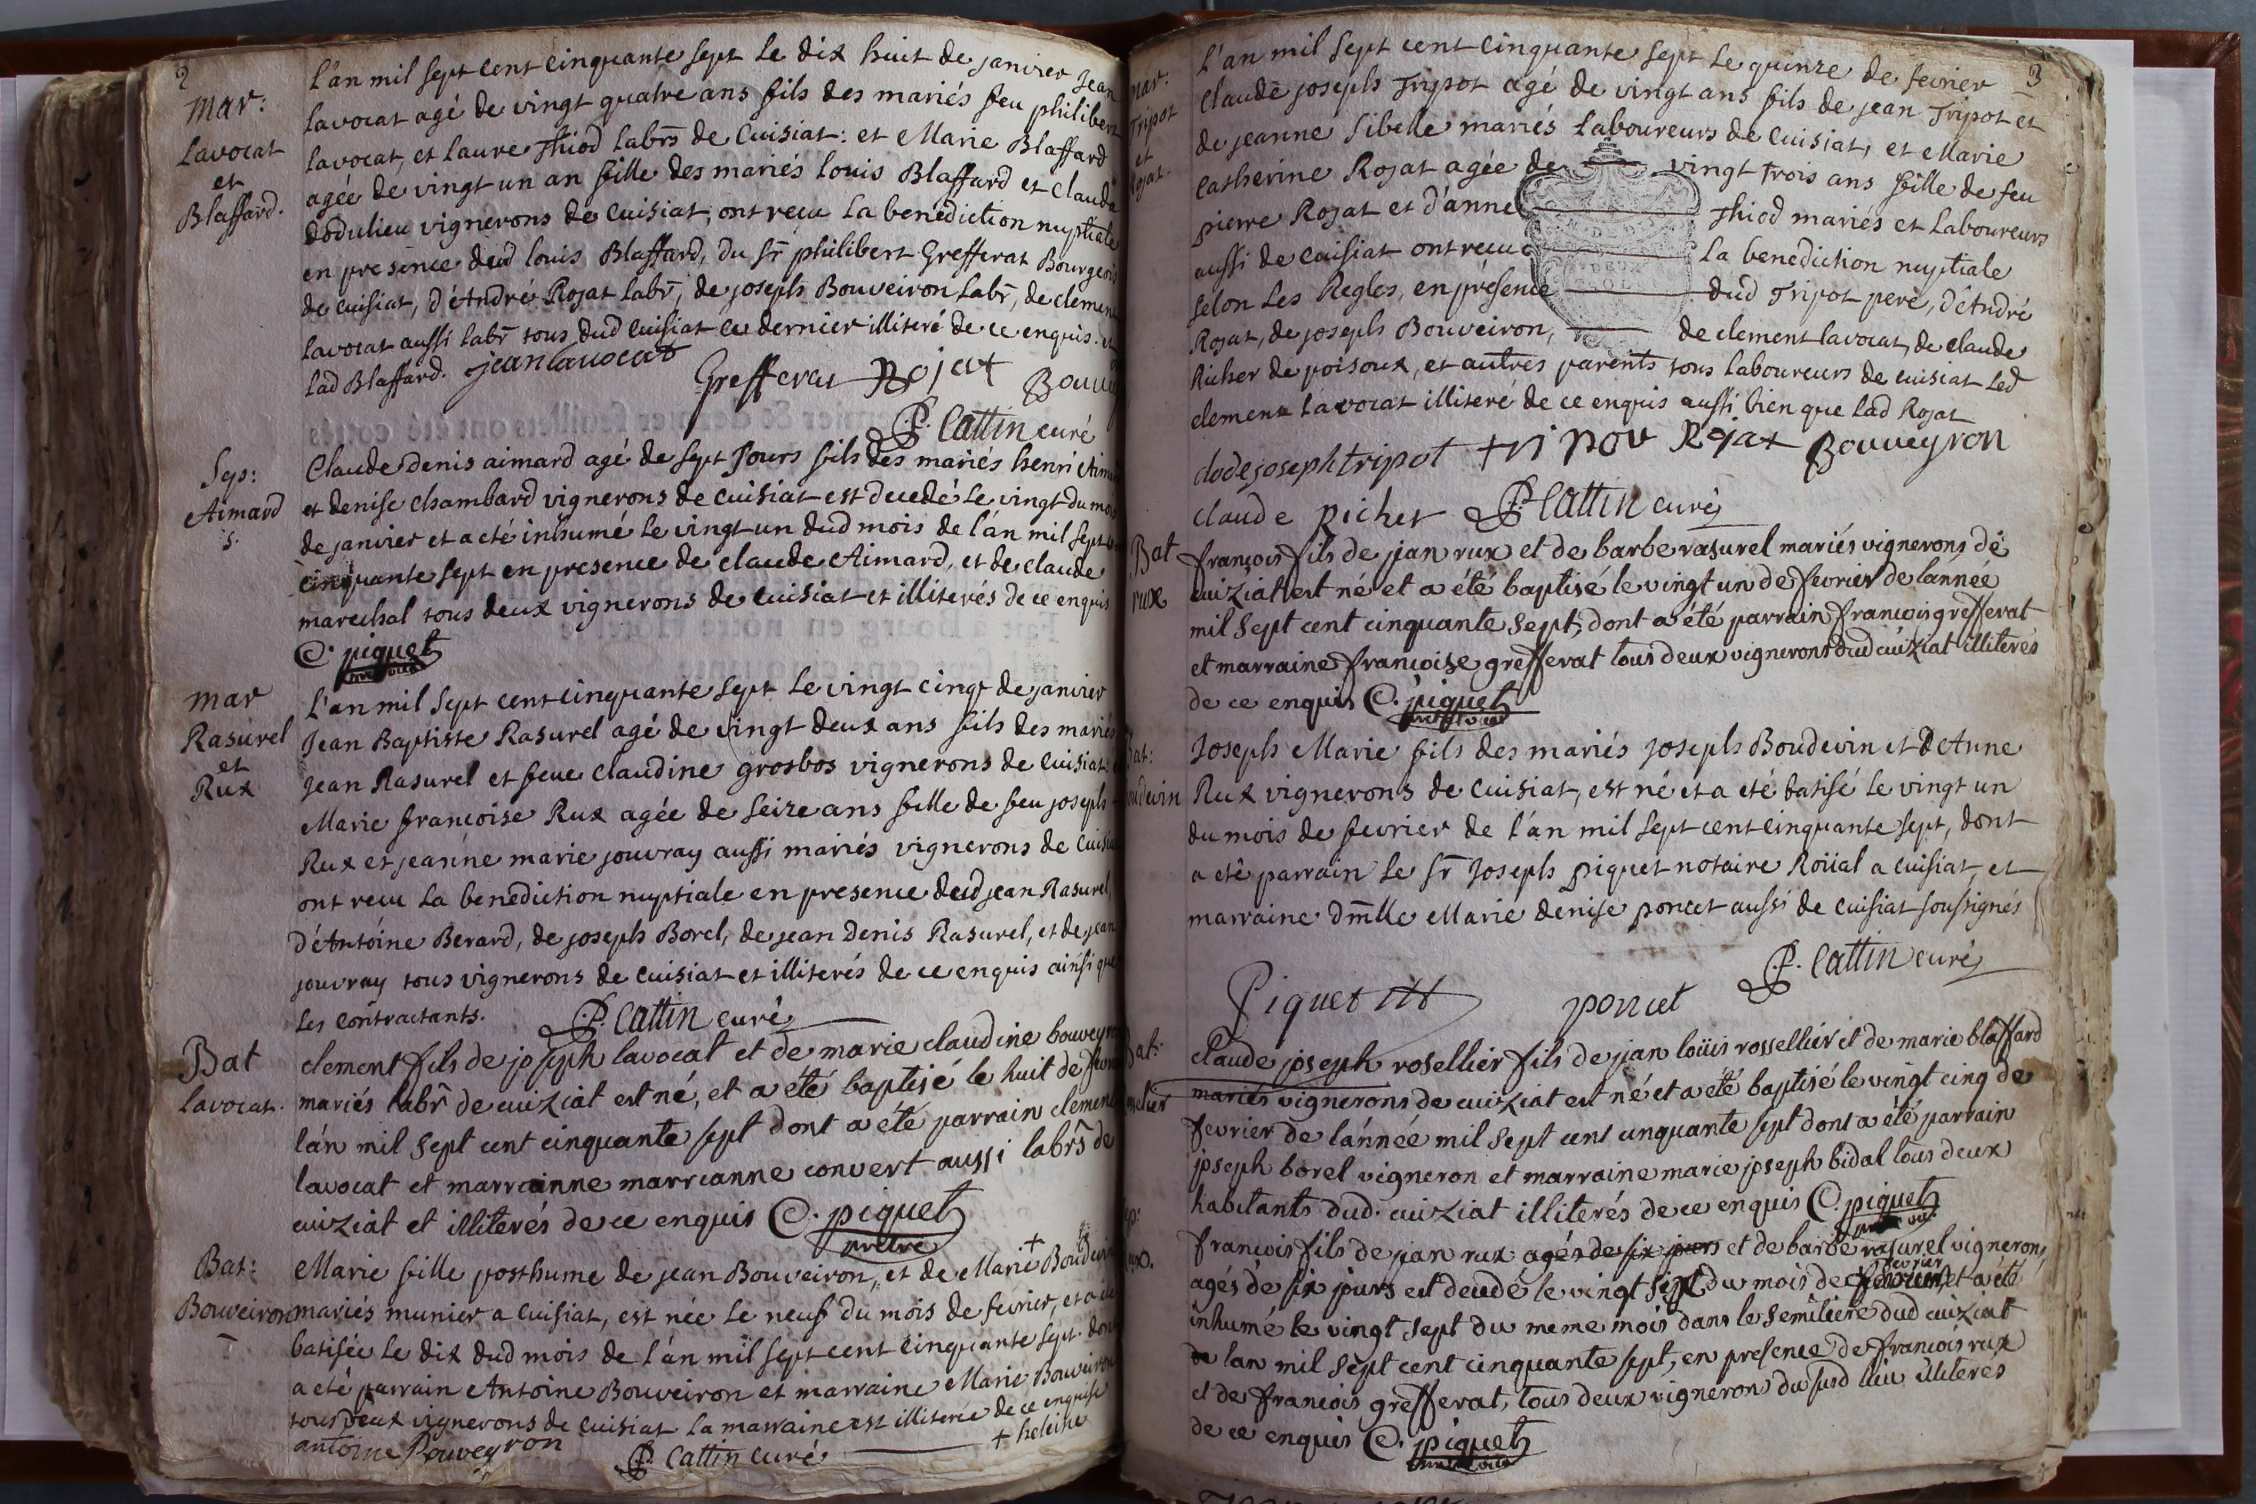 2
mar:
Lavocat
et
Blaffard.
L'an mil sept cent cinquante sept le dix huit de janvier Jean
lavocat agé de vingt quatre ans fils des mariés feu philibert
lavocat, et laure Thiod labrs de Cuisiat: et Marie Blaffard
agée de vingt un an fille des mariés louis Blaffard et Clauda
dodulieu vignerons de Cuisiat, ont recu la benediction nuptiale
en presence dud louis Blaffard, du Sr philibert Grefferat Bourgeois
de cuisiat, d'André Rojat labr, de joseph Bouveiron labr, de clement
lavocat aussi labr tous dud Cuisiat ce dernier illiteré de ce enquis. et
lad Blaffard. jean lavocat
Grefferat Rojat
P. Cattin curé
Sep:
Aimard
s.
Claude denis aimard agé de sept Jours fils des mariés henri Aimard
et denise chambard vignerons de cuisiat est decedé le vingt du mois
de janvier et a eté inhumé le vingt un dud mois de l'an mil sept
cinquante sept en presence de claude Aimard, et de claude
marechal tous deux vignerons de cuisiat et illiterés de ce enquis
C. piquet
mar
Rasurel
et
Rux
L'an mil sept cent cinquante sept le vingt cinq de janvier
Jean Baptiste Rasurel agé de vingt deux ans fils des mariés
Jean Rasurel et feue claudine grosbos vignerons de Cuisiat:
Marie françoise Rux agée de seize ans fille de feu joseph
Rux et jeanne marie jouvray aussi mariés vignerons de Cuisiat
ont recu la benediction nuptiale en presence dud jean Rasurel,
d'Antoine Berard, de joseph Borel, de jean Denis Rasurel, et de jean
jouvray tous vignerons de cuisiat et illiterés de ce enquis ainsi que
les contractants. P. Cattin curé
Bat
Lavocat.
clement fils de joseph lavocat et de marie claudine bouveyron
mariés labr de cuiziat est né, et a été baptisé le huit de
l'an mil sept cent cinquante sept dont a été parrain clement
lavocat et marrainne marrianne convert aussi labrs de
cuiziat et illiterés de ce enquis C. piquet
pretre
Bat:
Bouveiron
Marie fille posthume de jean Bouveiron, et de Marie + Boudevin
mariés munier a cuisiat, est née le neuf du mois de fevrier, et a
batisée le dix dud mois de l'an mil sept cent cinquante sept. dont
a eté parrain Antoine Bouveiron et marraine Marie Bouveiron
tous deux vignerons de cuisiat la marraine est illiterée de ce enquise
antoine Bouveyron P. Cattin curé + heleine
3
mar:
Tripot
et
Rojat.
L'an mil sept cent cinquante sept le quinze de fevrier
Claude joseph Tripot agé de vingt ans fils de jean Tripot et
de jeanne Sibelle mariés laboureurs de cuisiat, et Marie
catherine Rojat agée de vingt trois ans fille de feu
pierre Rojat et d'anne Thiod mariés et laboureurs
aussi de cuisiat ont recu la benediction nuptiale
selon les Regles, en présence dud Tripot pere, d'André
Rojat, de joseph Bouveiron, de clement lavocat, de claude
Richer de poisoux, et autres parents tous laboureurs de cuisiat led
clement lavocat illiteré de ce enquis aussi bien que lad Rojat
clode joseph tripot Rojat Bouveyron
claude richer P. Cattin curé
Bat
rux
françois fils de jean rux et de barbe rasurel mariés vignerons de
cuiziat est né et a été baptisé le vingt un de fevrier de lannée
mil sept cent cinquante sept, dont a été parrain francois grefferat
et marraine francoise grefferat tous deux vignerons dud cuiziat illiterés
de ce enquis C. piquet
Bat:
Boudevin
Joseph Marie fils des mariés Joseph Boudevin et d'Anne
Rux vignerons de cuisiat, est né et a eté batisé le vingt un
du mois de fevrier de l'an mil sept cent cinquante sept, dont
a eté parrain le Sr Joseph piquet notaire Roïial a cuisiat, et
marraine dmlle Marie denise poncet aussi de cuisiat soussignés
P. Cattin curé
Piquet poncet
Bat:
claude joseph rosellier fils de jean loüis rossellier et de marie blaffard
mariés vignerons de cuiziat est né et a été baptisé le vingt cinq de
fevrier de lannée mil sept cent cinquante sept dont a été parrain
joseph borel vigneron et marraine marie joseph bidal tous deux
habitants dud. cuiziat illiterés de ce enquis C. piquet
françois fils de jean rux agés de six jours et de barbe rasurel vignerons
agés de six jours est decedé le vingt sept du mois de fevrier, et a été
inhumé le vingt sept du meme mois dans le semitiere dud cuiziat
lan mil sept cent cinquante sept, en presence de francois rux
et de francois grefferat, tous deux vignerons du susd lieu illiteres
de ce enquis C. piquet